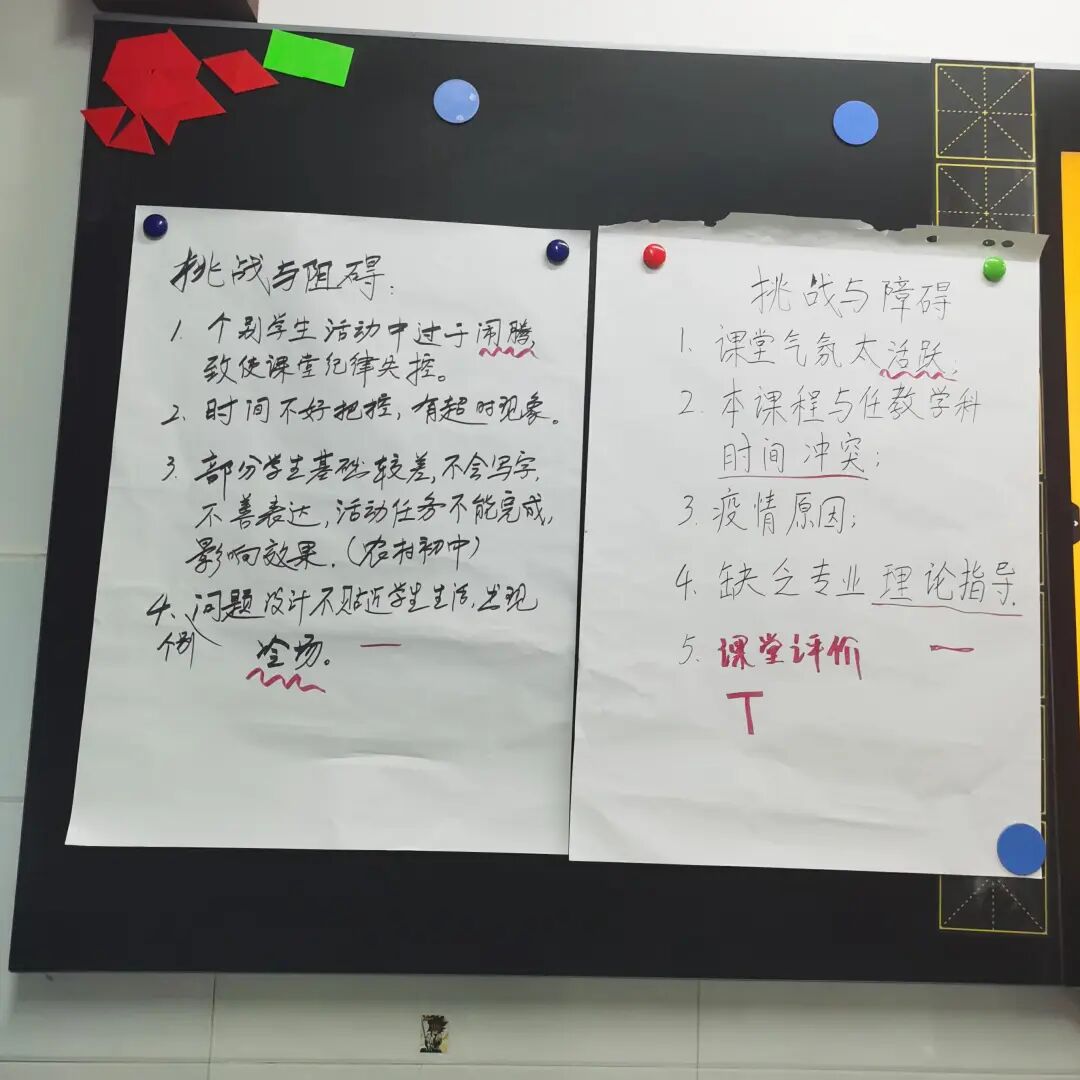 挑战与阻碍：
1. 个别学生活动中过于闹腾，
致使课堂纪律失控。
2. 时间不好把控，有超时现象。
3. 部分学生基础较差，不会写字，
不善表达，活动任务不能完成，
影响效果.（农村初中）
4、问题设计不贴近学生生活，出现
个别
冷场。
挑战与障碍
1. 课堂气氛太活跃；
2. 本课程与任教学科
时间冲突；
3. 疫情原因；
4. 缺乏专业理论指导.
5. 课堂评价
T